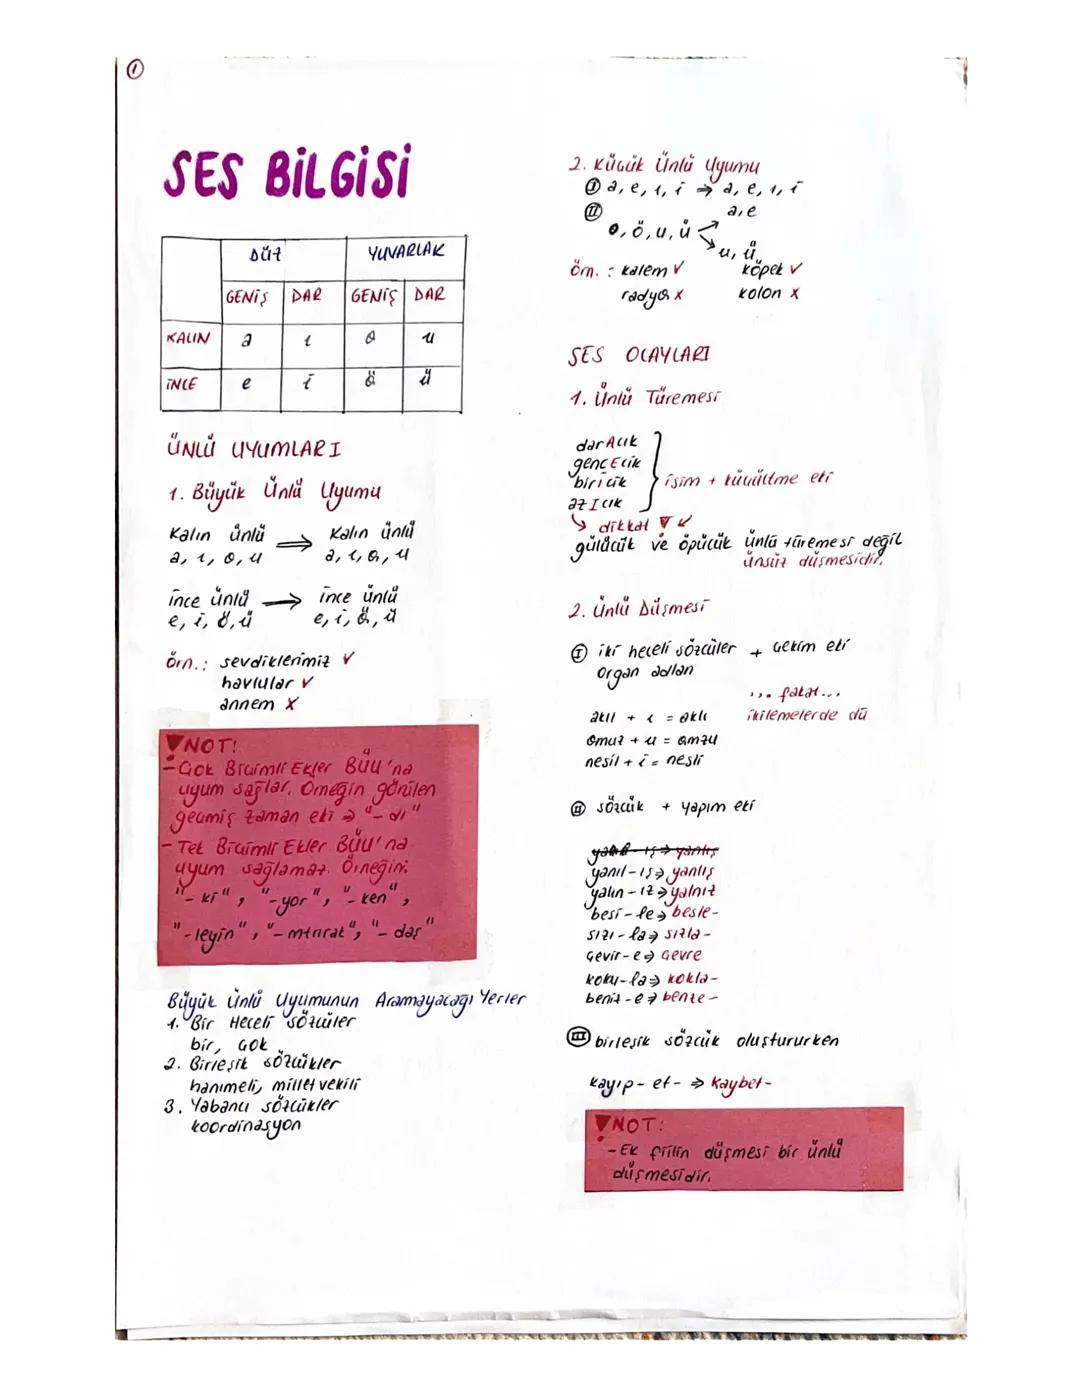 1
SES BİLGİSİ
DÜZ YUVARLAK
GENİŞ DAR GENİŞ DAR
KALIN a ı o u
İNCE e i ö ü
ÜNLÜ UYUMLARI
1. Büyük Ünlü Uyumu
Kalın ünlü ⇒ Kalın ünlü
a, ı, o, u a, ı, o, u
ince ünlü → ince ünlü
e, i, ö, ü e, i, ö, ü
örn.: sevdiklerimiz ✓
havlular ✓
annem X
▼NOT!
-Çok Biçimli Ekler BÜU'na
uyum sağlar. Örneğin görülen
geçmiş zaman eki ⇒ "-dı"
-Tek Biçimli Ekler BÜU'na
uyum sağlamaz. Örneğin:
"-ki", "-yor", "-ken",
"-leyin", "-mtırat", "-daş"
Büyük Ünlü Uyumunun Aramayacağı Yerler
1. Bir Heceli sözcüler
bir, çok
2. Birleşik sözcükler
hanımeli, milletvekili
3. Yabancı sözcükler
koordinasyon
2. Küçük Ünlü Uyumu
I a, e, ı, i ⇒ a, e, ı, i
II a, e
o, ö, u, ü
u, ü
örn. : kalem ✓ köpek ✓
radyo X kolon X
SES OLAYLARI
1. Ünlü Türemesi
darAcık
gencEcik
biricik
azIcık
isim + küçültme eki
dikkat
gülücük ve öpücük ünlü türemesi değil
ünsüz düşmesidir.
2. Ünlü Düşmesi
I iki heceli sözcüler + çekim eki
organ adları
... fakat...
akıl + ı = aklı ikilemelerde dü
omuz + u = omzu
nesil + i = nesli
II sözcük + yapım eki
yanıl-ış ⇒ yanlış
yanıl-ış ⇒ yanlış
yalın-ız ⇒ yalnız
besi-le ⇒ besle-
sızı-la ⇒ sızla-
çevir-e ⇒ çevre
koku-la ⇒ kokla-
beniz-e ⇒ benze-
III birleşik sözcük oluştururken
kayıp-et- ⇒ kaybet-
▼NOT:
-Ek fiilin düşmesi bir ünlü
düşmesidir.